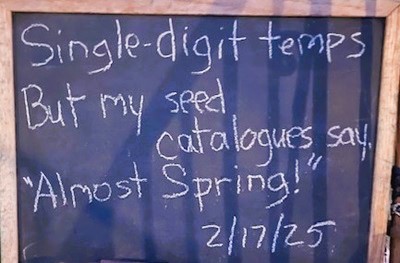 Single-digit temps
But my seed
catalogues say,
"Almost Spring!"
2/17/25